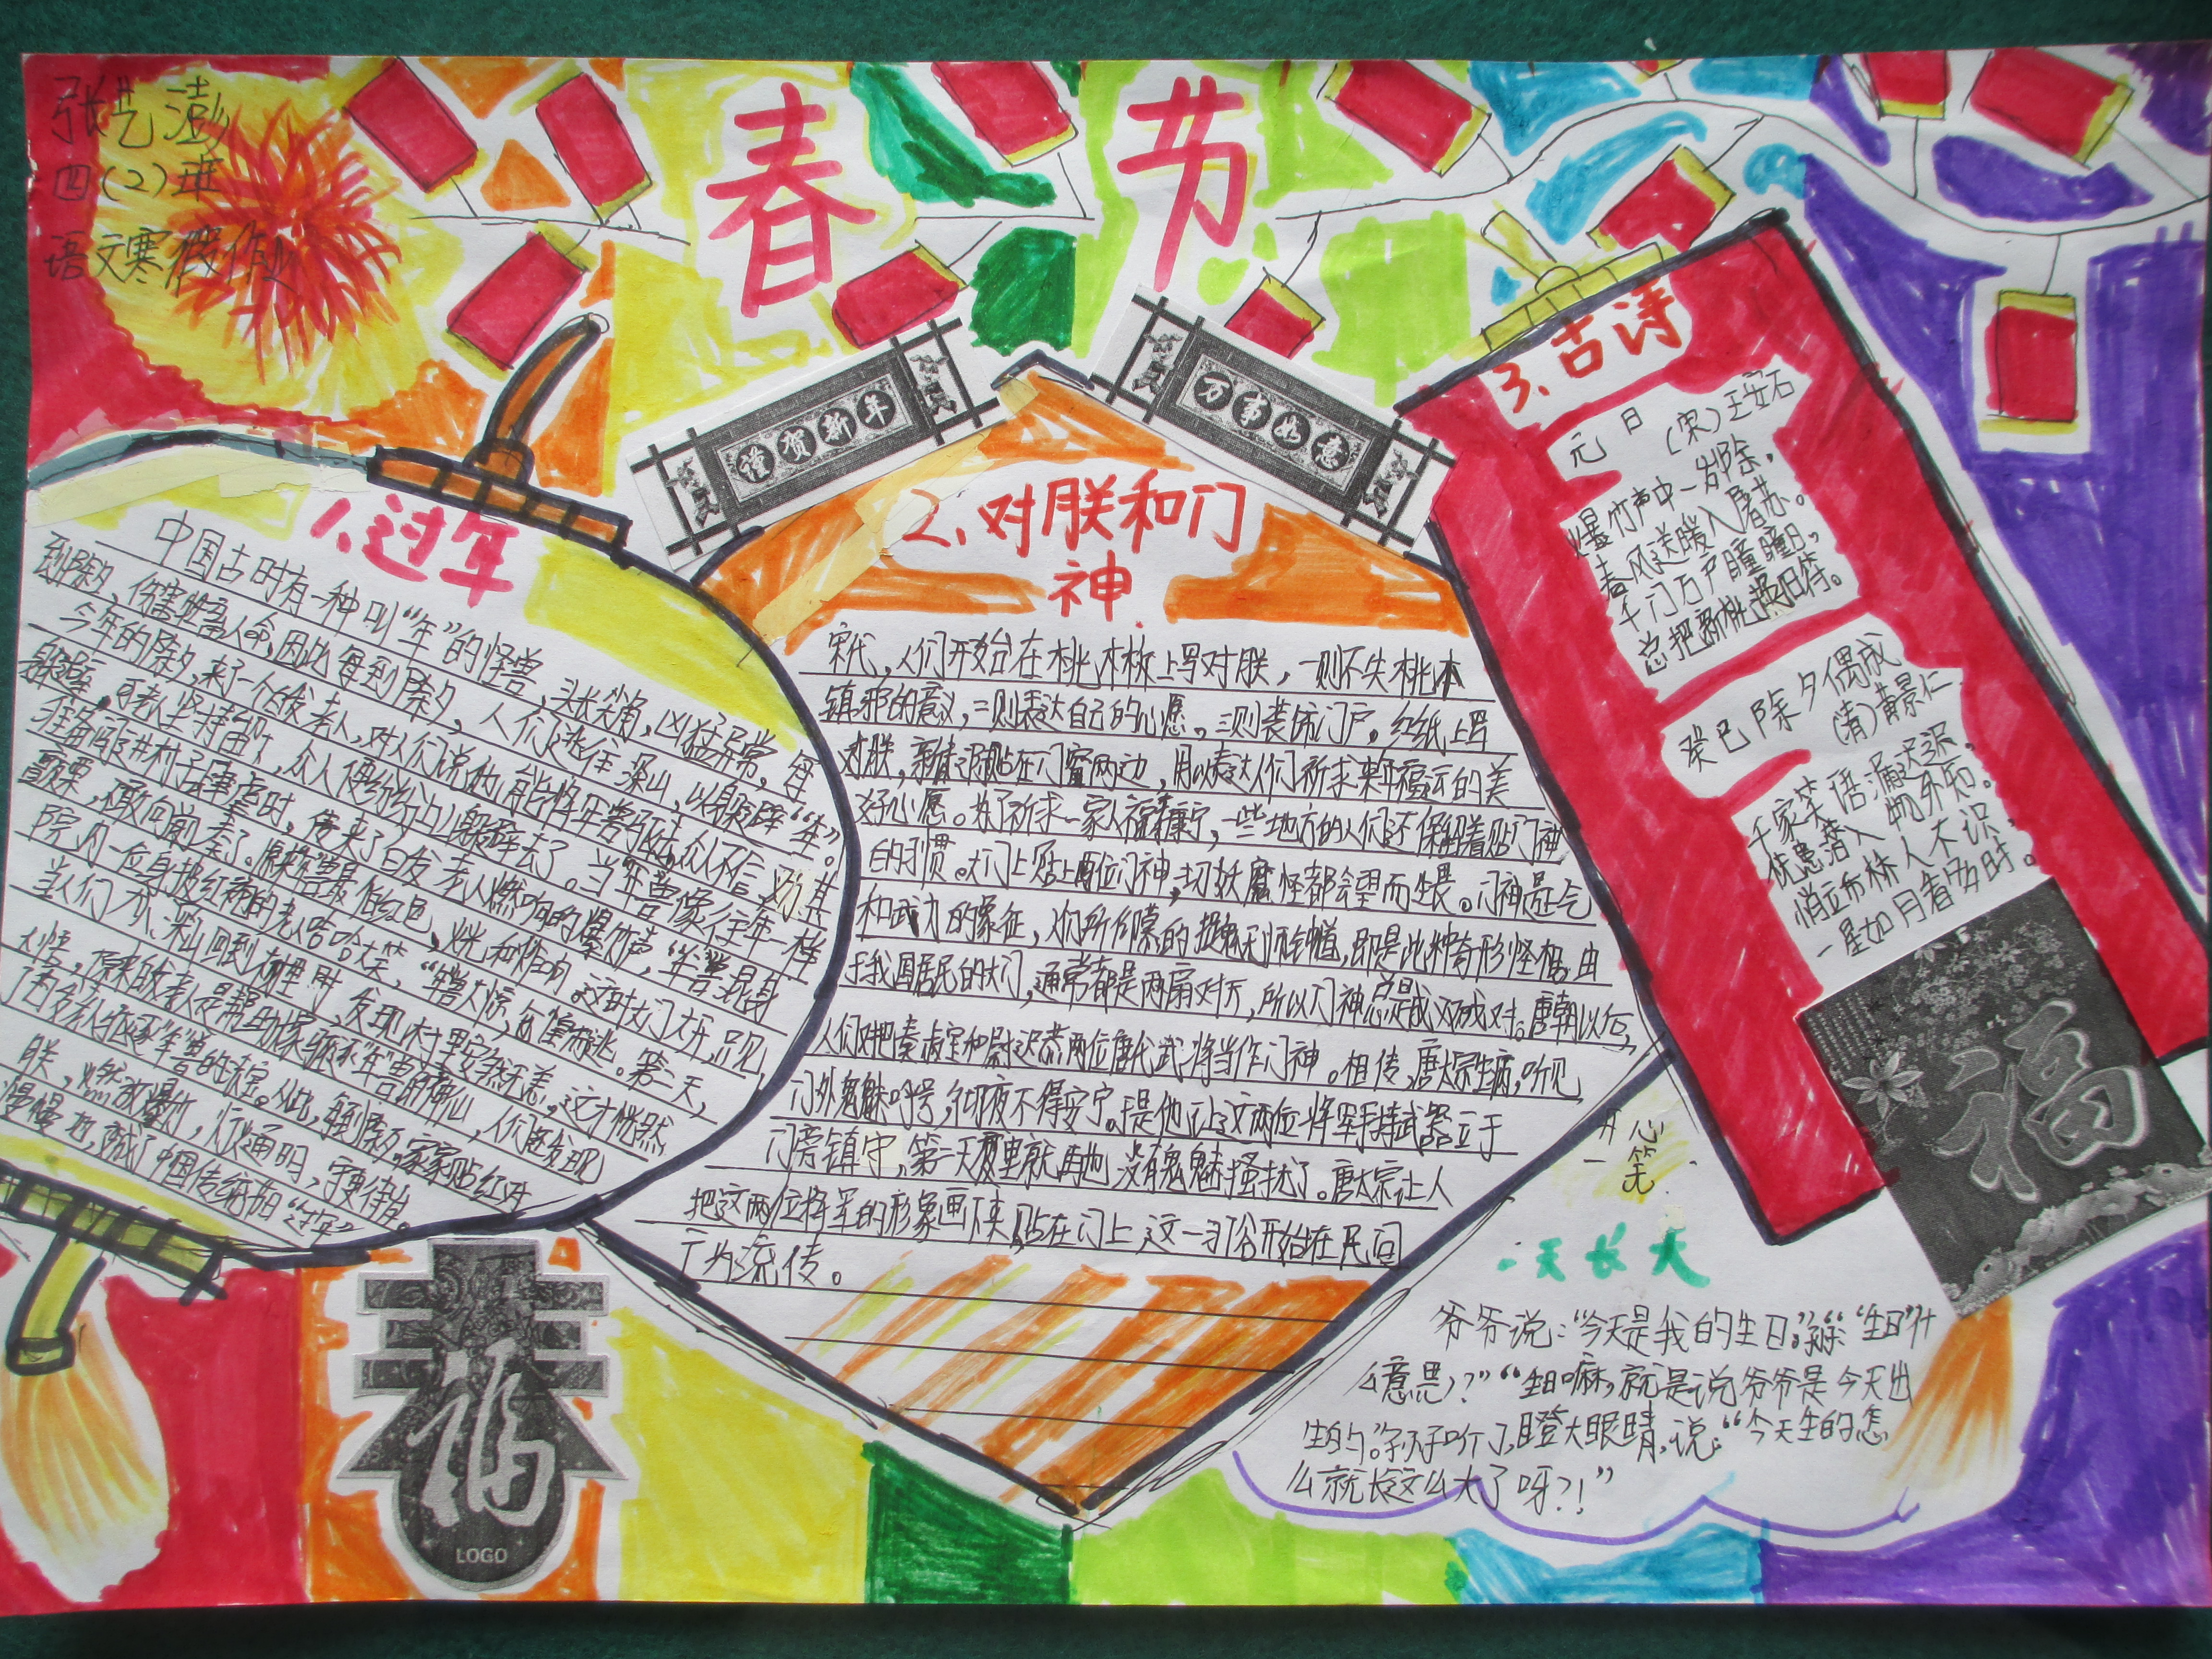 张艺澎
四(2)班
语文寒假作业
春节
谨贺新年
万事如意
1、过年
中国古时有一种叫“年”的怪兽,头长尖角,凶猛异常,每
到除夕,伤害牲畜人命,因此每到除夕,人们逃往深山,以躲避“年”。
今年的除夕,来了一个白发老人,对人们说他能将年兽驱走,众人不信,劝其
躲避,可老人坚持留下,众人便纷纷上山躲避去了。当“年”兽像往年一样
准备闯进村子肆虐时,传来了白发老人燃响的爆竹声,“年”兽混身
颤栗,不敢向前走了。原来“年”兽最怕红色,火光和炸响。这时大门大开,只见
院内一位身披红袍的老人哈哈大笑,“年”兽大惊,仓惶而逃。第二天,
当人们从深山回到村里时,发现村里安然无恙,这才恍然
大悟,原来白发老人是帮助大家驱逐“年”兽的神仙,人们还发现
了白发老人驱逐“年”兽的法宝。从此,每到除夕,家家贴红对
联,燃放爆竹,灯火通明,守更待岁。
慢慢地,成了中国传统节日“过年”
2、对朕和门
神
宋代,人们开始在桃木板上写对朕,一则不失桃木
镇邪的意义,二则表达自己的心愿。三则装饰门户。红纸上写
对朕,新春之际贴在门窗两边,用以表达人们祈求来年福运的美
好心愿。为了祈求一家人福寿康宁,一些地方的人们还保留着贴门神
的习惯。大门上贴上两位门神,一切妖魔怪都会望而生畏。门神是正气
和武力的象征,人们所仰慕的捉鬼天师钟馗,即是此种奇形怪相。由
于我国居民的大门,通常都是两扇对开,所以门神总是成双成对。唐朝以后,
人们又把秦叔宝和尉迟恭两位唐代武将当作门神。相传,唐太宗生病,听见
门外鬼魅呼号,彻夜不得安宁。于是他让这两位将军手持武器立于
门旁镇守,第二天夜里就再也没有鬼魅搔扰了。唐太宗让人
把这两位将军的形象画下来贴在门上,这一习俗开始在民间
广为流传。
3、古诗
元日
(宋)王安石
爆竹声中一岁除,
春风送暖入屠苏。
千门万户瞳瞳日,
总把新桃换旧符。
癸巳除夕偶成
(清)黄景仁
千家笑语漏迟迟,
忧患潜入物外知。
悄立市桥人不识,
一星如月看多时。
福
开心
一笑
一天长大
爷爷说:“今天是我的生日。”孙孙:“‘生日’什
么意思?”“生日嘛,就是说爷爷是今天出
生的。”孙子听了,瞪大眼睛,说:“今天生的怎
么就长这么大了呀?!”
福
LOGO